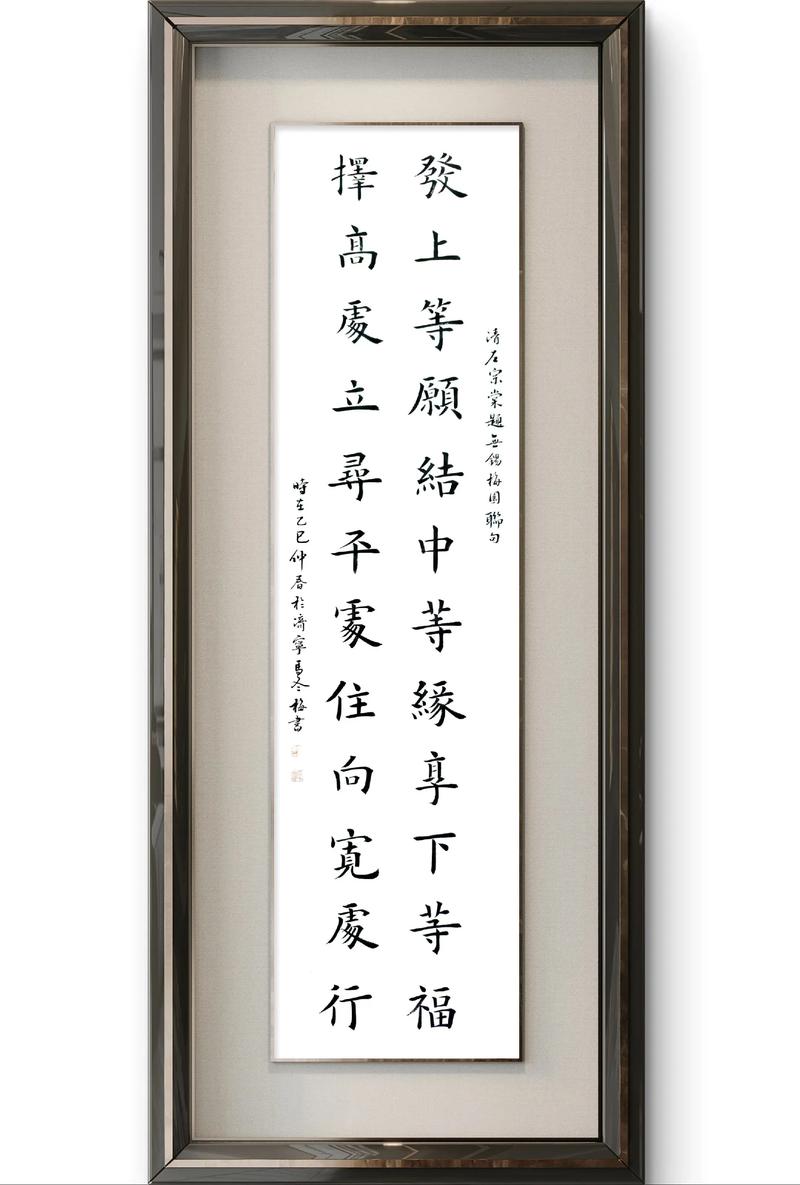 清左宗棠題無錫梅園聯句
發上等願結中等緣享下等福
擇高處立尋平處住向寬處行
時在乙巳仲春於濟寧馬冬梅書